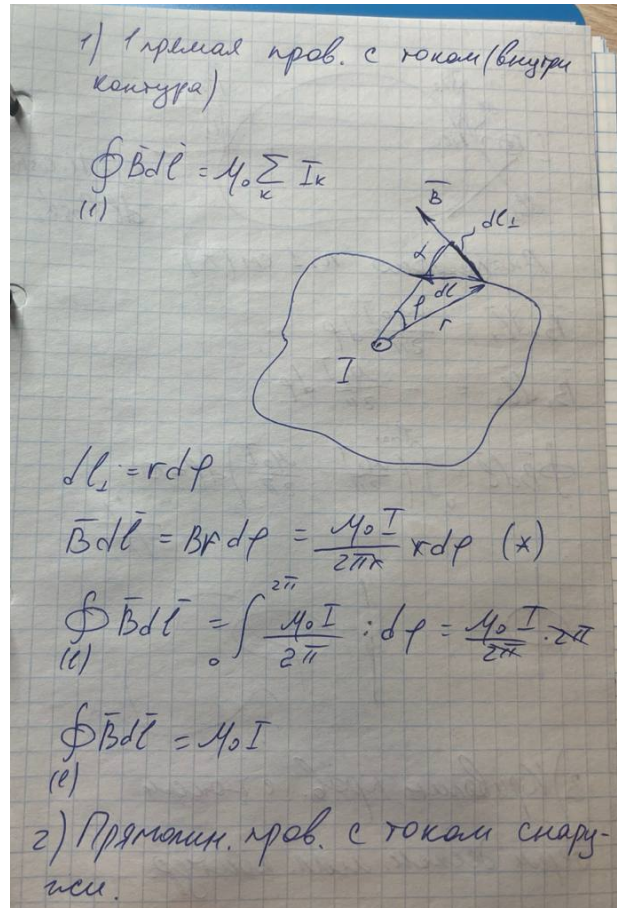 1) 1 прямая пров. с током (внутри
контура)
∮ B̄dl̄ = μ₀ Σ Iₖ
(l) к
B̄
dl⊥
α
dl
φ
r
I
dl⊥ = rdφ
B̄dl̄ = Brdφ = μ₀I/2πr rdφ (x)
∮ B̄dl̄ = ₀∫²π μ₀I/2π · dφ = μ₀I/2π · 2π
(l)
∮ B̄dl̄ = μ₀I
(l)
2) Прямолин. пров. с током снару-
жи.